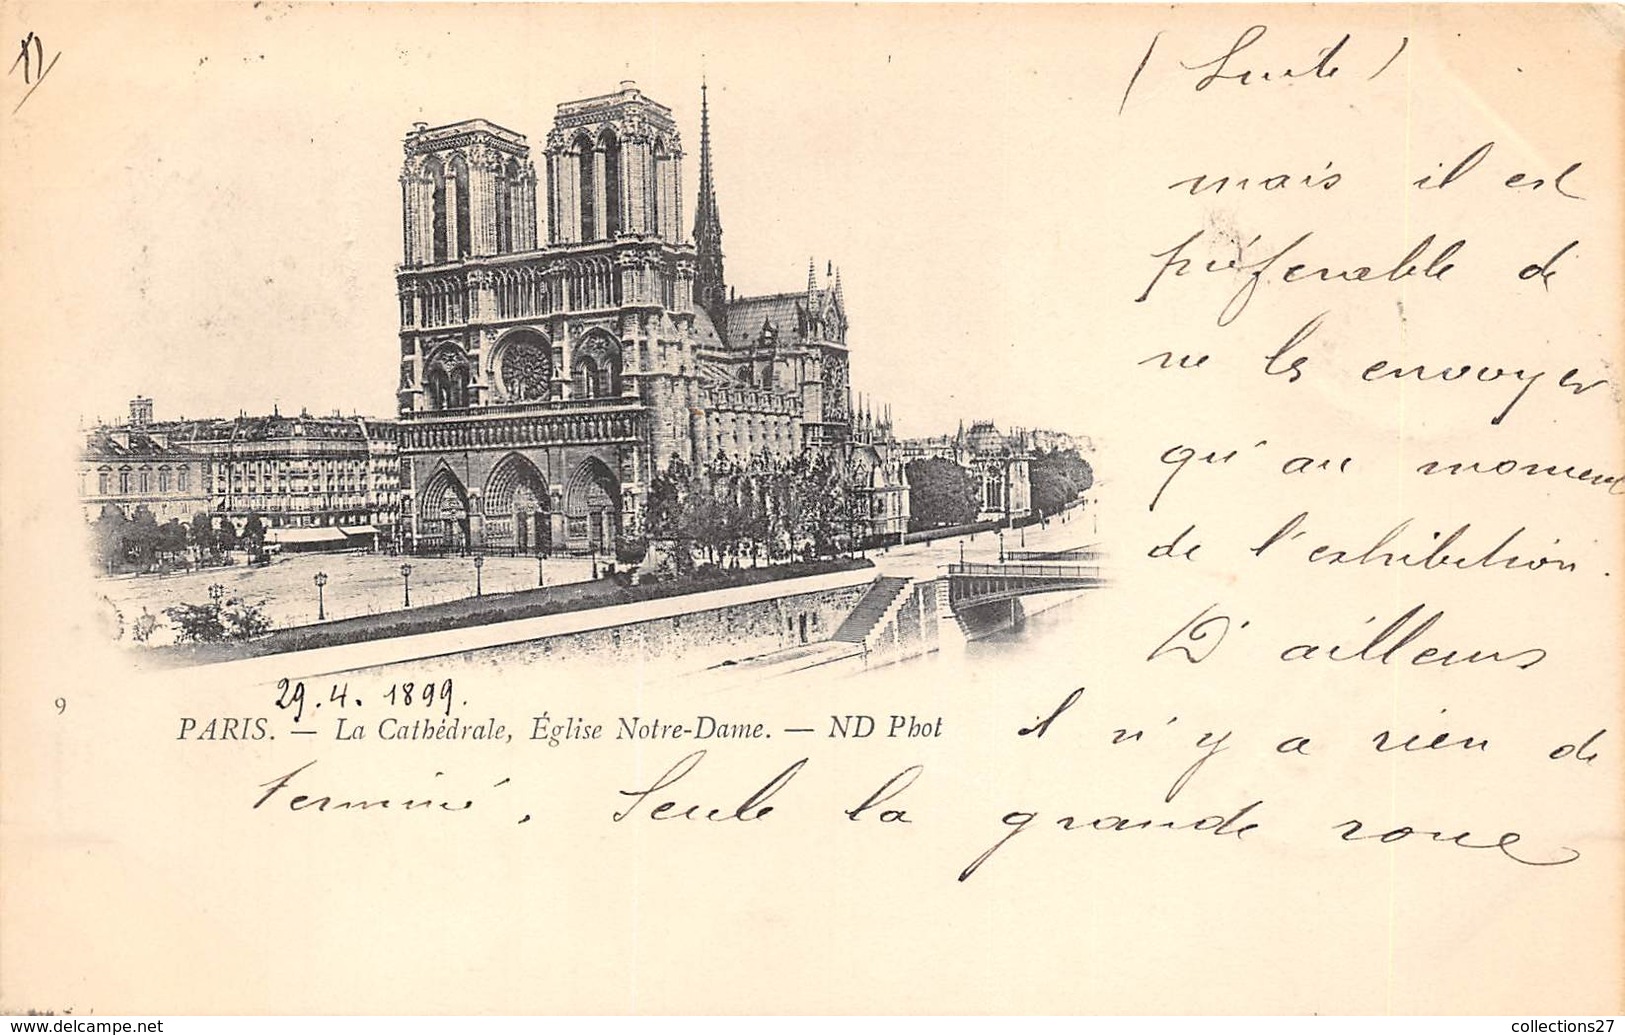 (Suite)
mais il est
préférable de
ne les envoyer
qu'au moment
de l'exhibition.
D'ailleurs
29.4.1899.
9
PARIS. — La Cathédrale, Église Notre-Dame. — ND Phot
il n'y a rien de
terminé. Seule la grande roue
www.delcampe.net
collections27